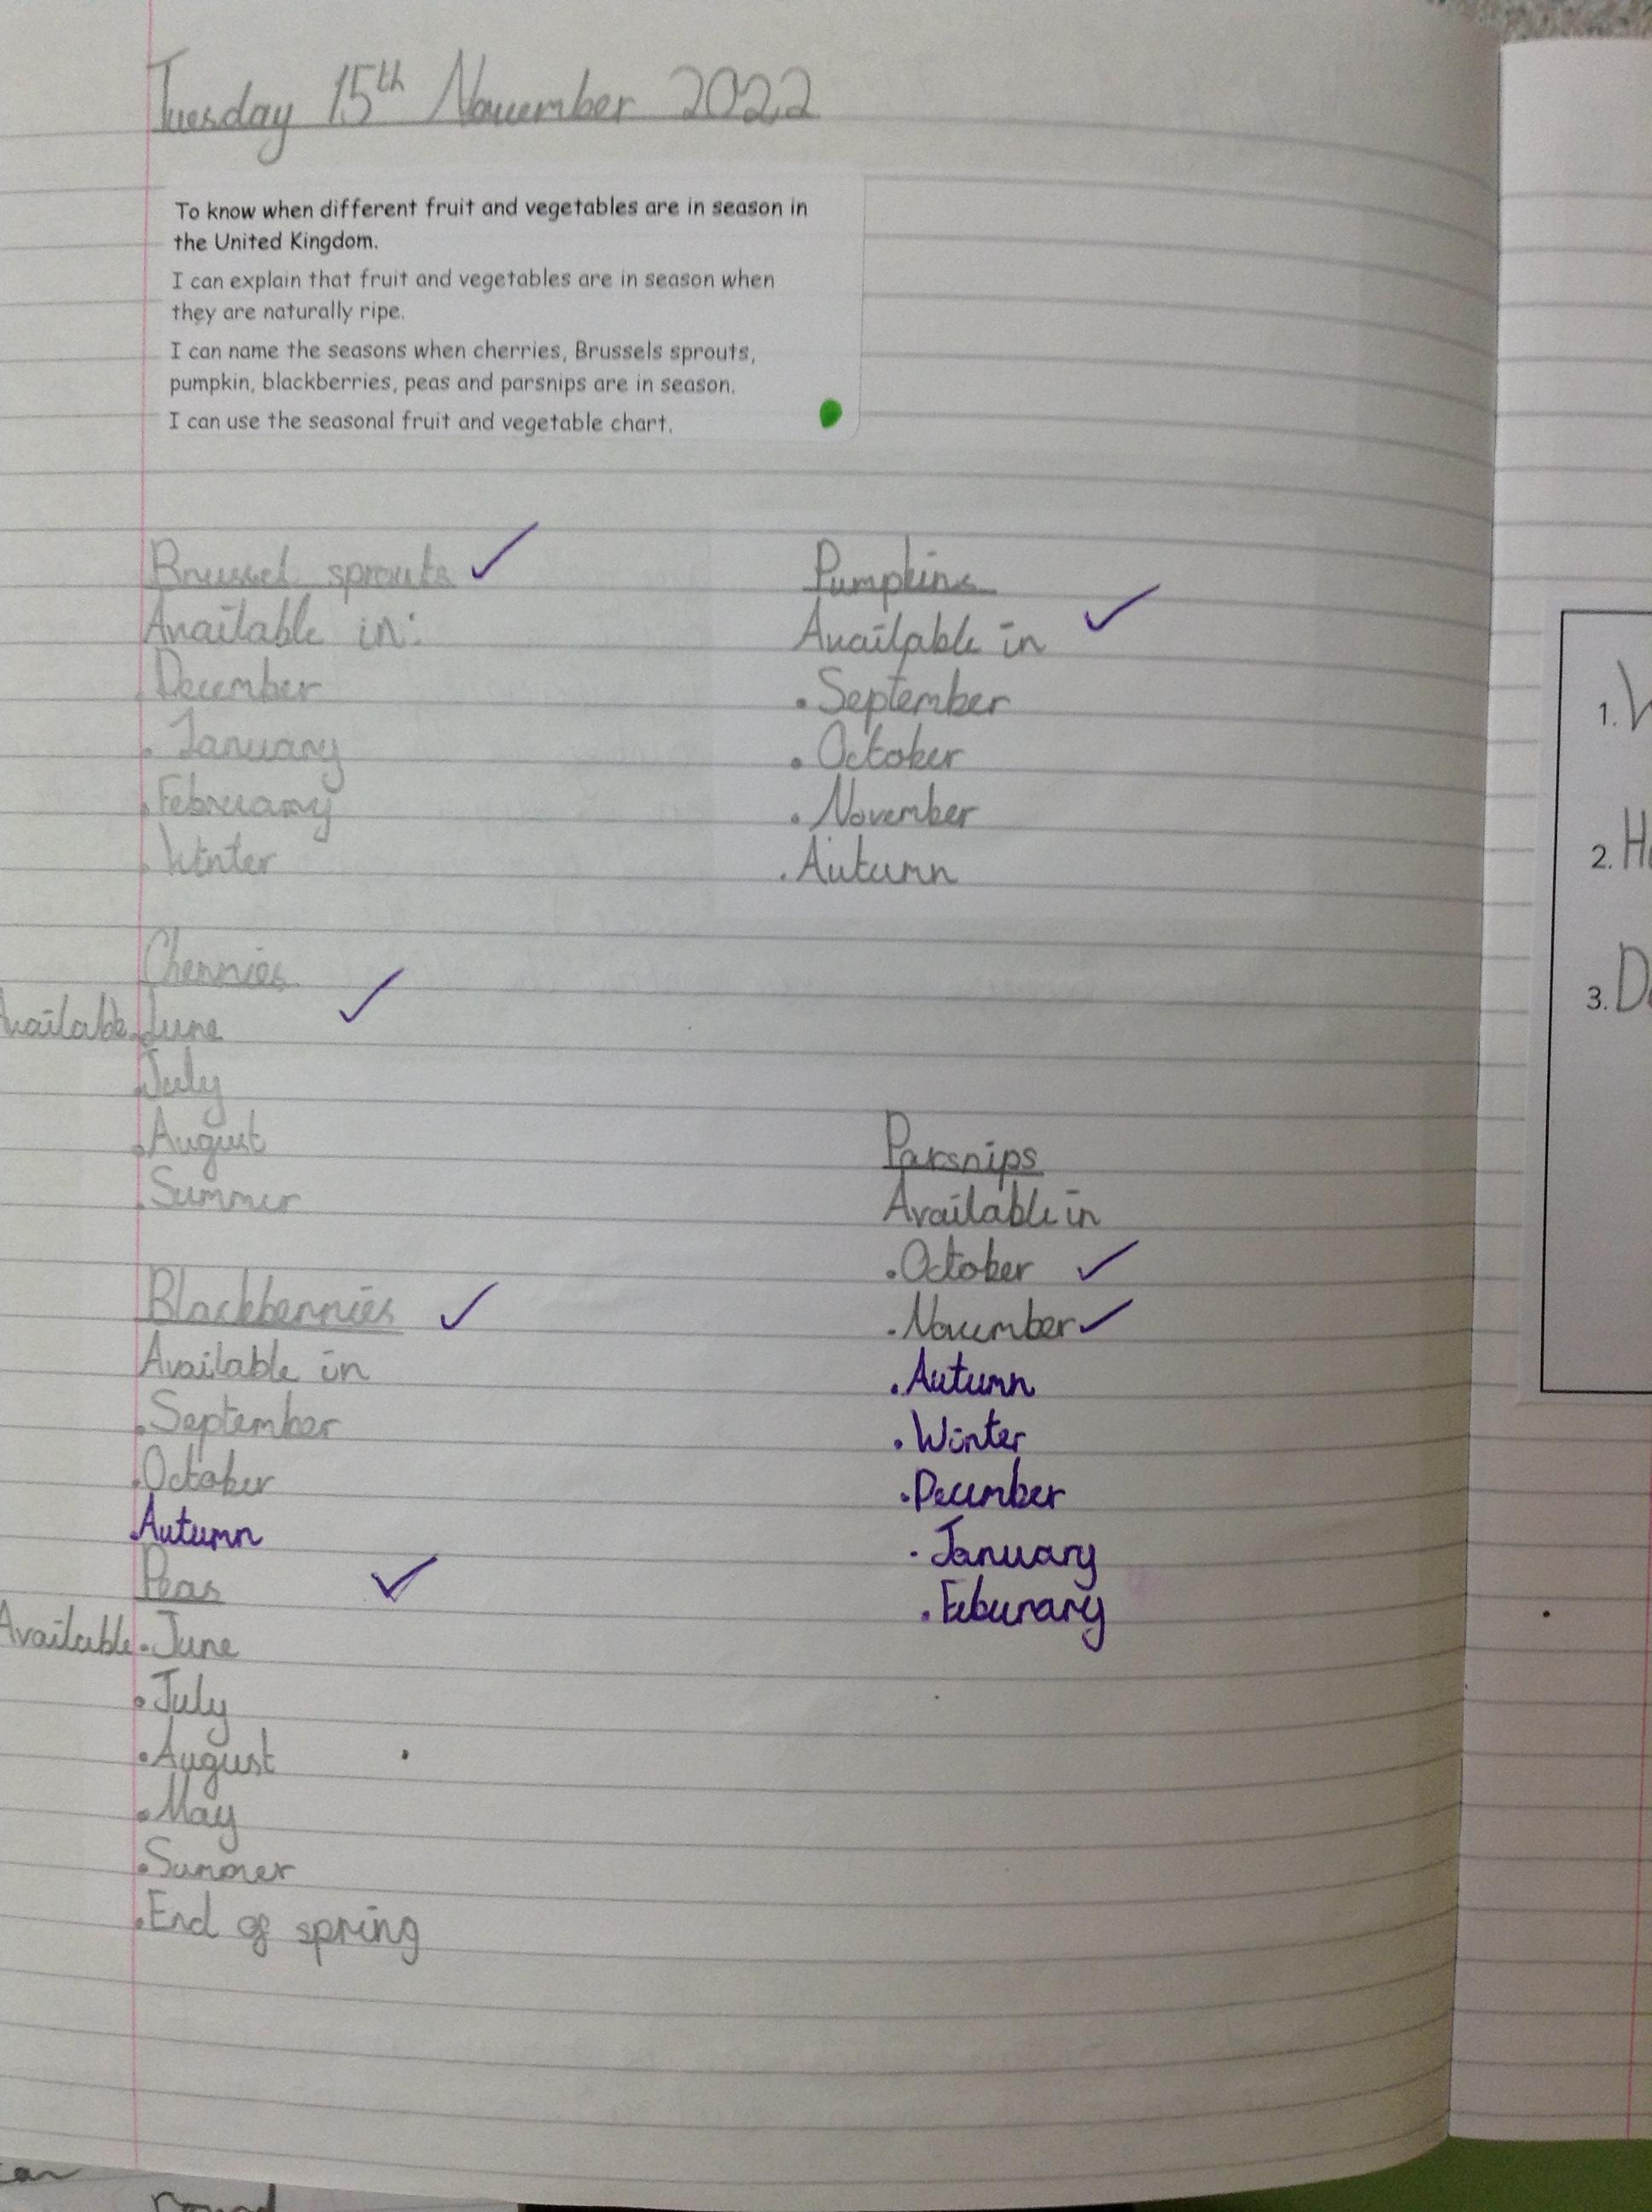 Tuesday 15th November 2022
To know when different fruit and vegetables are in season in
the United Kingdom.
I can explain that fruit and vegetables are in season when
they are naturally ripe.
I can name the seasons when cherries, Brussels sprouts,
pumpkin, blackberries, peas and parsnips are in season.
I can use the seasonal fruit and vegetable chart.
Brussel sprouts
Available in:
December
. January
. February
. Winter
Cherries
Available . June
. July
. August
. Summer
Blackberries
Available in
. September
. October
. Autumn
Peas
Available . June
. July
. August
. May
. Summer
. End of spring
Pumpkins
Available in
. September
. October
. November
. Autumn
Parsnips
Available in
. October
. November
. Autumn
. Winter
. December
. January
. Feburary
1.
2.
3.
round